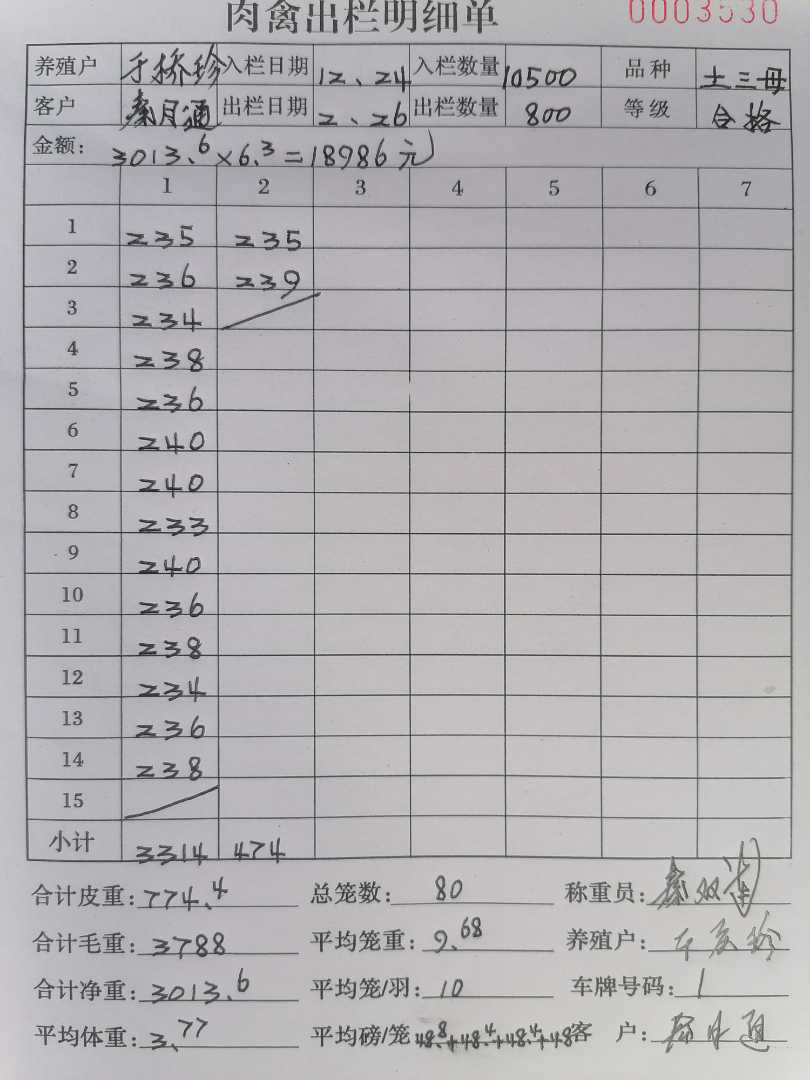 肉禽出栏明细单 0003530
养殖户 于桥珍 入栏日期 12、24 入栏数量 10500 品种 土三母
客户 秦月通 出栏日期 2、26 出栏数量 800 等级 合格
金额: 3013.6×6.3=18986元
1 2 3 4 5 6 7
1 235 235
2 236 239
3 234
4 238
5 236
6 240
7 240
8 233
9 240
10 236
11 238
12 234
13 236
14 238
15
小计 3314 474
合计皮重: 774.4 总笼数: 80 称重员: 秦双
合计毛重: 3788 平均笼重: 9.68 养殖户: 珍
合计净重: 3013.6 平均笼/羽: 10 车牌号码: 1
平均体重: 3.77 平均磅/笼 48.8+48.4+48.4+48 客 户: 秦月通